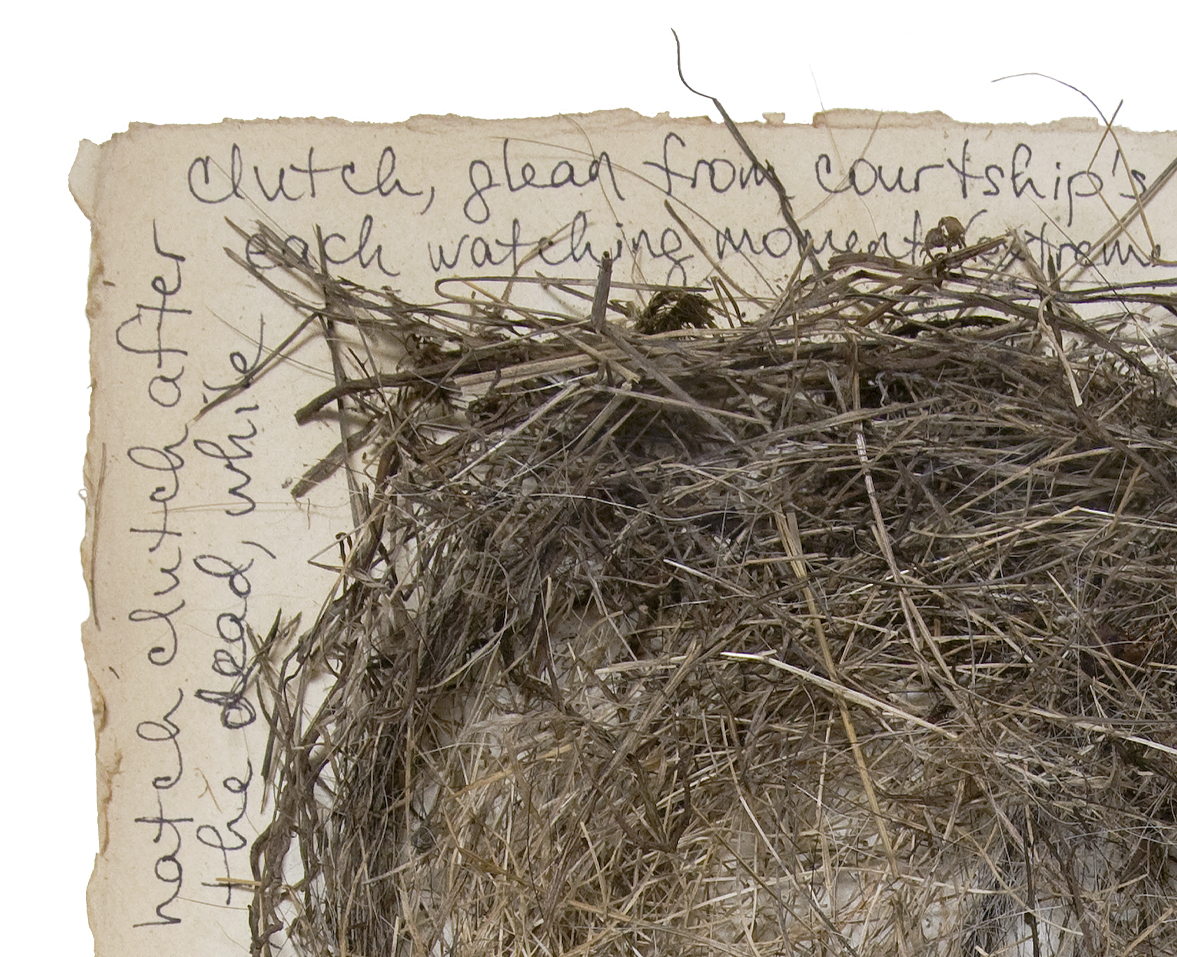 clutch, glean from courtship's
each watching moment (extreme
hatch clutch after
the dead, while